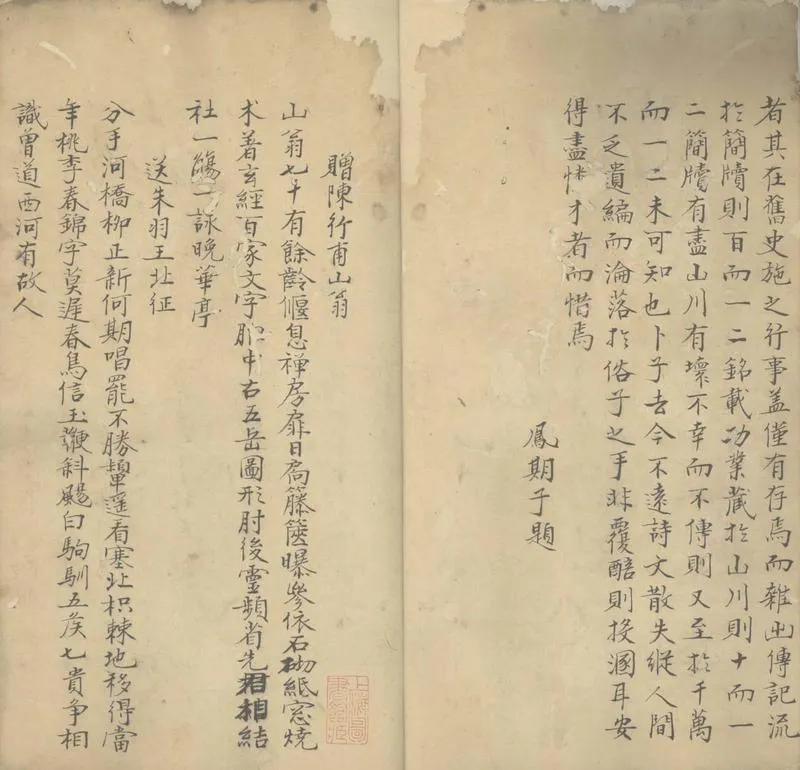 者其在舊史施之行事盖僅有存焉而雜出傳記流
於簡牘則百而一二銘載功業藏於山川則十而一
二簡牘有盡山川有壞不幸而不傳則又至於千萬
而一二未可知也卜子去今不遠詩文散失縱人間
不乏遺編而淪落於俗子之手非覆醅則投溷耳安
得盡怜才者而惜焉
鳳期子題
贈陳行甫山翁
山翁七十有餘齡偃息禅房扉日扃籐篋曝參依石砌紙窓燒
术著玄經百家文字胸中右五岳圖形肘後靈頻省先君相結
社一觴一詠晚華亭
送朱羽王北征
分手河橋柳正新何期唱罷不勝顰遥看塞北枳棘地移得當
年桃李春錦字莫遲春鳥信玉鞭斜颺白駒馴五矦七貴争相
識曾道西河有故人
上海圖
書舘藏